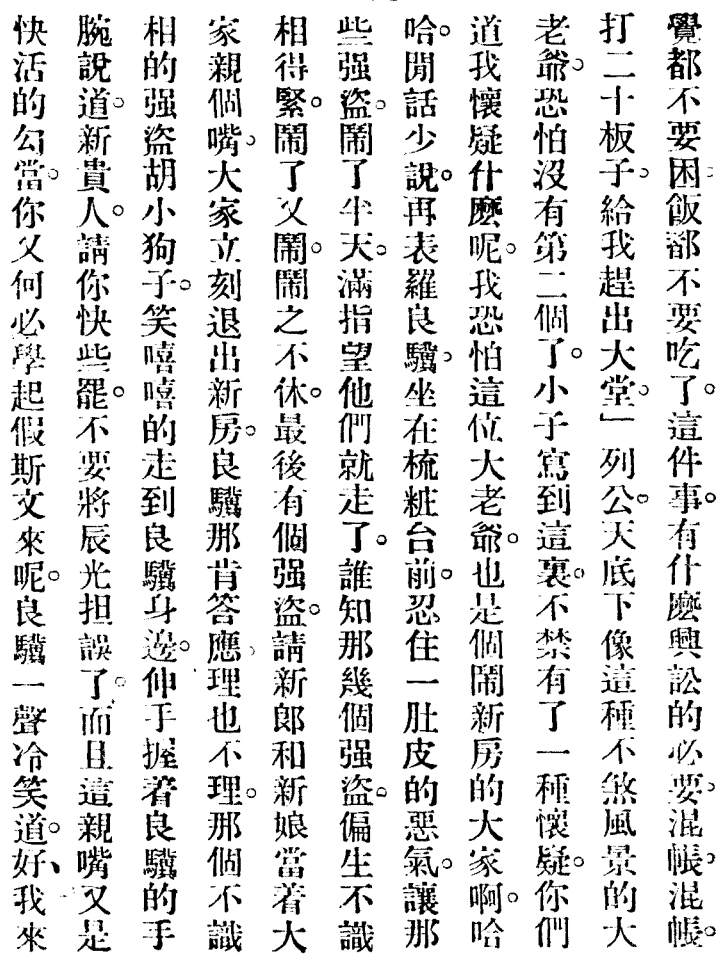 覺都不要困飯都不要吃了。這件事。有什麽興訟的必要。混帳。混帳。
打二十板子。給我趕出大堂。」列公。天底下像這種不煞風景的大
老爺。恐怕沒有第二個了。小子寫到這裏。不禁有了一種懷疑。你們
道我懷疑什麽呢。我恐怕這位大老爺。也是個鬧新房的大家啊。哈
哈。閒話少說。再表羅良驥。坐在梳粧台前。忍住一肚皮的惡氣。讓那
些强盜。鬧了半天。滿指望他們就走了。誰知那幾個强盜。偏生不識
相得緊。鬧了又鬧。鬧之不休。最後有個强盜。請新郞和新娘當着大
家親個嘴。大家立刻退出新房。良驥那肯答應、理也不理。那個不識
相的强盜胡小狗子。笑嘻嘻的走到良驥身邊。伸手握着良驥的手
腕說道。新貴人。請你快些罷。不要將辰光担誤了。而且這親嘴又是
快活的勾當。你又何必學起假斯文來呢。良驥一聲冷笑道。好、我來